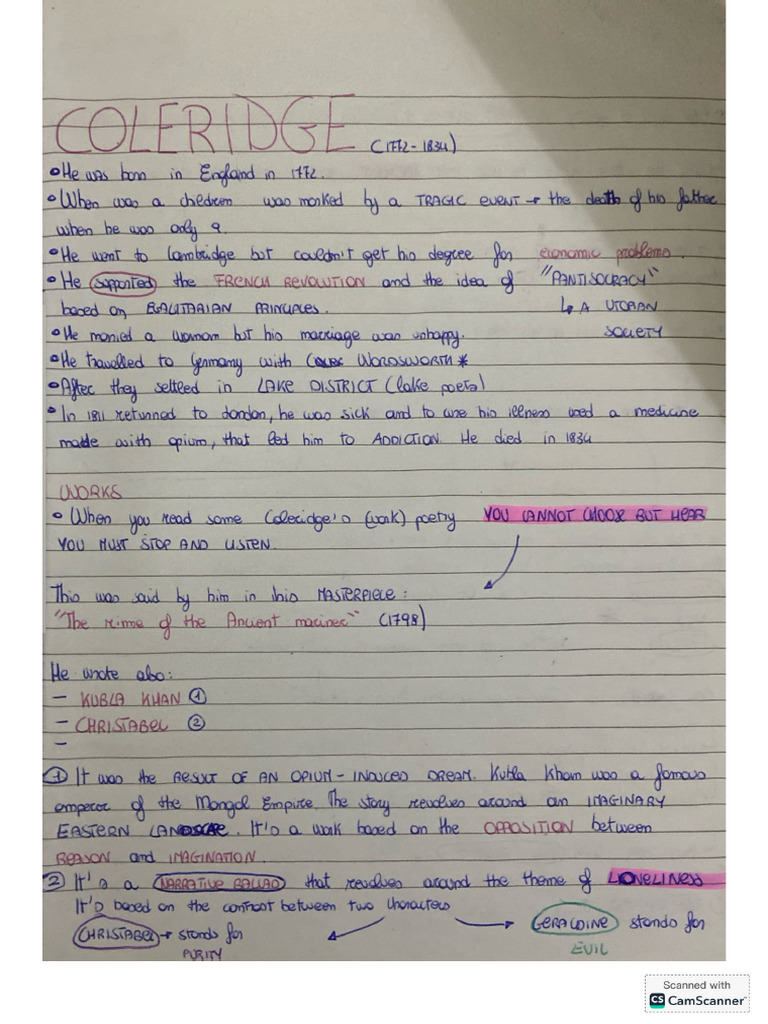 COLERIDGE (1772-1834)
• He was born in England in 1772.
• When was a children was marked by a TRAGIC EVENT → the death of his father
when he was only 9.
• He went to Cambridge but couldn't get his degree for economic problems.
• He supported the FRENCH REVOLUTION and the idea of "PANTISOCRACY"
based on EGALITARIAN PRINCIPLES. ↳ A UTOPIAN
SOCIETY
• He married a woman but his marriage was unhappy.
• He travelled to Germany with WORDSWORTH *
• After they settled in LAKE DISTRICT (lake poets)
• In 1811 returned to London, he was sick and to cure his illness used a medicine
made with opium, that led him to ADDICTION. He died in 1834
WORKS
• When you read some Coleridge's (work) poetry YOU CANNOT CHOOSE BUT HEAR
YOU MUST STOP AND LISTEN.
This was said by him in his MASTERPIECE:
"The rime of the Ancient mariner" (1798)
He wrote also:
– KUBLA KHAN ①
– CHRISTABEL ②
–
① It was the RESULT OF AN OPIUM-INDUCED DREAM. Kubla Kham was a famous
emperor of the Mongol Empire. The story revolves around an IMAGINARY
EASTERN LANDSCAPE. It's a work based on the OPPOSITION between
REASON and IMAGINATION.
② It's a NARRATIVE BALLAD that revolves around the theme of LONELINESS
It's based on the contrast between two characters
CHRISTABEL → stands for GERALDINE stands for
PURITY EVIL
Scanned with
CS CamScanner